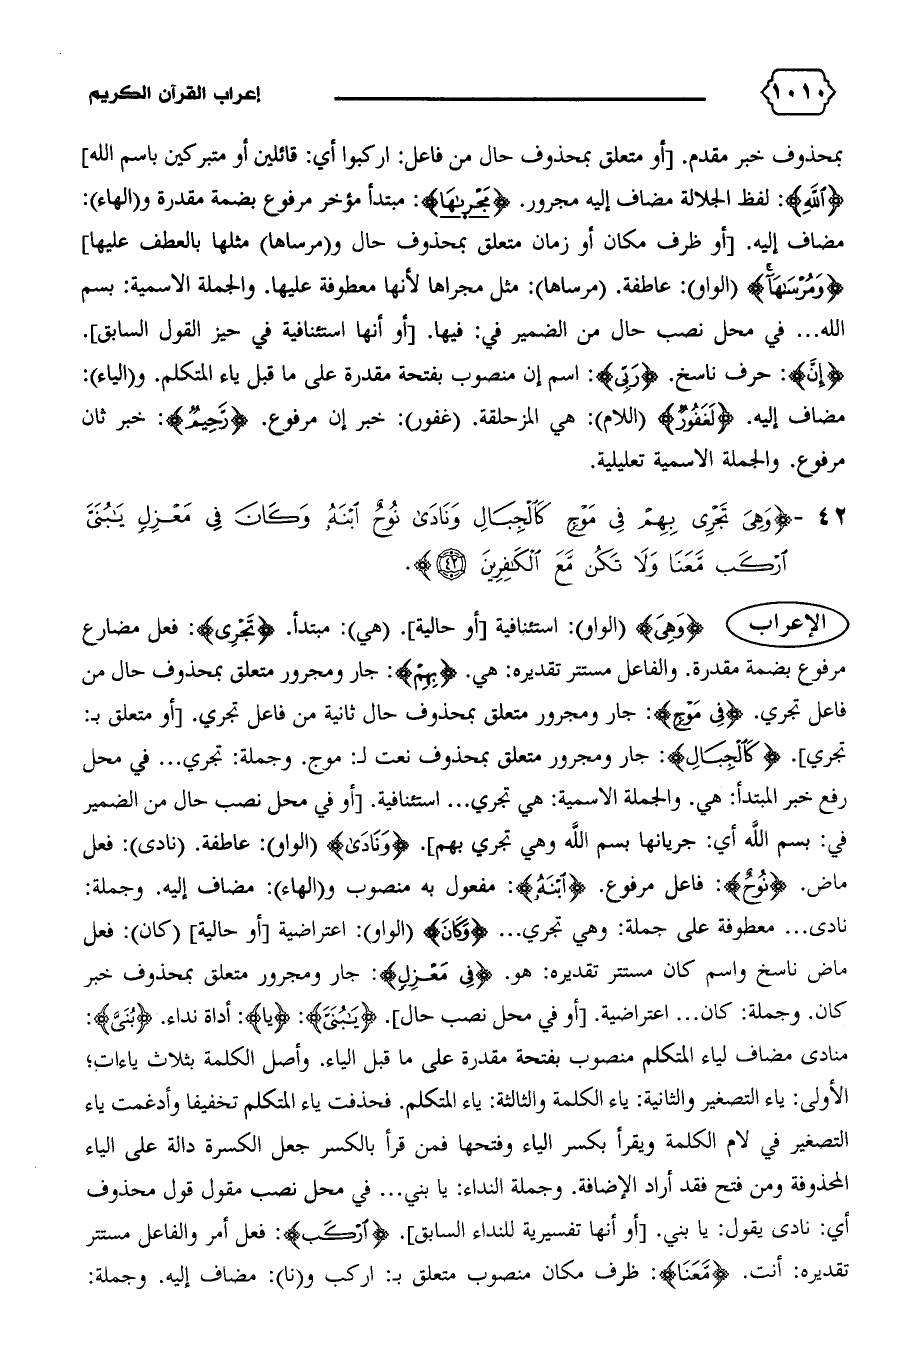 ١٠١٠ إعراب القرآن الكريم
بمحذوف خبر مقدم. [أو متعلق بمحذوف حال من فاعل: اركبوا أي: قائلين أو متبركين باسم الله]
﴿ٱللَّهِ﴾: لفظ الجلالة مضاف إليه مجرور. ﴿مَجْر۪ىٰهَا﴾: مبتدأ مؤخر مرفوع بضمة مقدرة و(الهاء):
مضاف إليه. [أو ظرف مكان أو زمان متعلق بمحذوف حال و(مرساها) مثلها بالعطف عليها]
﴿وَمُرْسَىٰهَآ ۚ﴾ (الواو): عاطفة. (مرساها): مثل مجراها لأنها معطوفة عليها. والجملة الاسمية: بسم
الله... في محل نصب حال من الضمير في: فيها. [أو أنها استئنافية في حيز القول السابق].
﴿إِنَّ﴾: حرف ناسخ. ﴿رَبِّى﴾: اسم إن منصوب بفتحة مقدرة على ما قبل ياء المتكلم. و(الياء):
مضاف إليه. ﴿لَغَفُورٌ﴾ (اللام): هي المزحلقة. (غفور): خبر إن مرفوع. ﴿رَّحِيمٌ﴾: خبر ثان
مرفوع. والجملة الاسمية تعليلية.
٤٢ -﴿وَهِىَ تَجْرِى بِهِمْ فِى مَوْجٍ كَٱلْجِبَالِ وَنَادَىٰ نُوحٌ ٱبْنَهُۥ وَكَانَ فِى مَعْزِلٍ يَـٰبُنَىَّ
ٱرْكَب مَّعَنَا وَلَا تَكُن مَّعَ ٱلْكَـٰفِرِينَ ٤٢﴾.
الإعراب ﴿وَهِىَ﴾ (الواو): استئنافية [أو حالية]. (هي): مبتدأ. ﴿تَجْرِى﴾: فعل مضارع
مرفوع بضمة مقدرة. والفاعل مستتر تقديره: هي. ﴿بِهِمْ﴾: جار ومجرور متعلق بمحذوف حال من
فاعل تجري. ﴿فِى مَوْجٍ﴾: جار ومجرور متعلق بمحذوف حال ثانية من فاعل تجري. [أو متعلق بـ:
تجري]. ﴿كَٱلْجِبَالِ﴾: جار ومجرور متعلق بمحذوف نعت لـ: موج. وجملة: تجري... في محل
رفع خبر المبتدأ: هي. والجملة الاسمية: هي تجري... استئنافية. [أو في محل نصب حال من الضمير
في: بسم اللَّه أي: جريانها بسم اللَّه وهي تجري بهم]. ﴿وَنَادَىٰ﴾ (الواو): عاطفة. (نادى): فعل
ماض. ﴿نُوحٌ﴾: فاعل مرفوع. ﴿ٱبْنَهُۥ﴾: مفعول به منصوب و(الهاء): مضاف إليه. وجملة:
نادى... معطوفة على جملة: وهي تجري... ﴿وَكَانَ﴾ (الواو): اعتراضية [أو حالية] (كان): فعل
ماض ناسخ واسم كان مستتر تقديره: هو. ﴿فِى مَعْزِلٍ﴾: جار ومجرور متعلق بمحذوف خبر
كان. وجملة: كان... اعتراضية. [أو في محل نصب حال]. ﴿يَـٰبُنَىَّ﴾: ﴿يا﴾: أداة نداء. ﴿بُنَىَّ﴾:
منادى مضاف لياء المتكلم منصوب بفتحة مقدرة على ما قبل الياء. وأصل الكلمة بثلاث ياءات؛
الأولى: ياء التصغير والثانية: ياء الكلمة والثالثة: ياء المتكلم. فحذفت ياء المتكلم تخفيفا وأدغمت ياء
التصغير في لام الكلمة ويقرأ بكسر الياء وفتحها فمن قرأ بالكسر جعل الكسرة دالة على الياء
المحذوفة ومن فتح فقد أراد الإضافة. وجملة النداء: يا بني... في محل نصب مقول قول محذوف
أي: نادى يقول: يا بني. [أو أنها تفسيرية للنداء السابق]. ﴿ٱرْكَب﴾: فعل أمر والفاعل مستتر
تقديره: أنت. ﴿مَّعَنَا﴾: ظرف مكان منصوب متعلق بـ: اركب و(نا): مضاف إليه. وجملة: